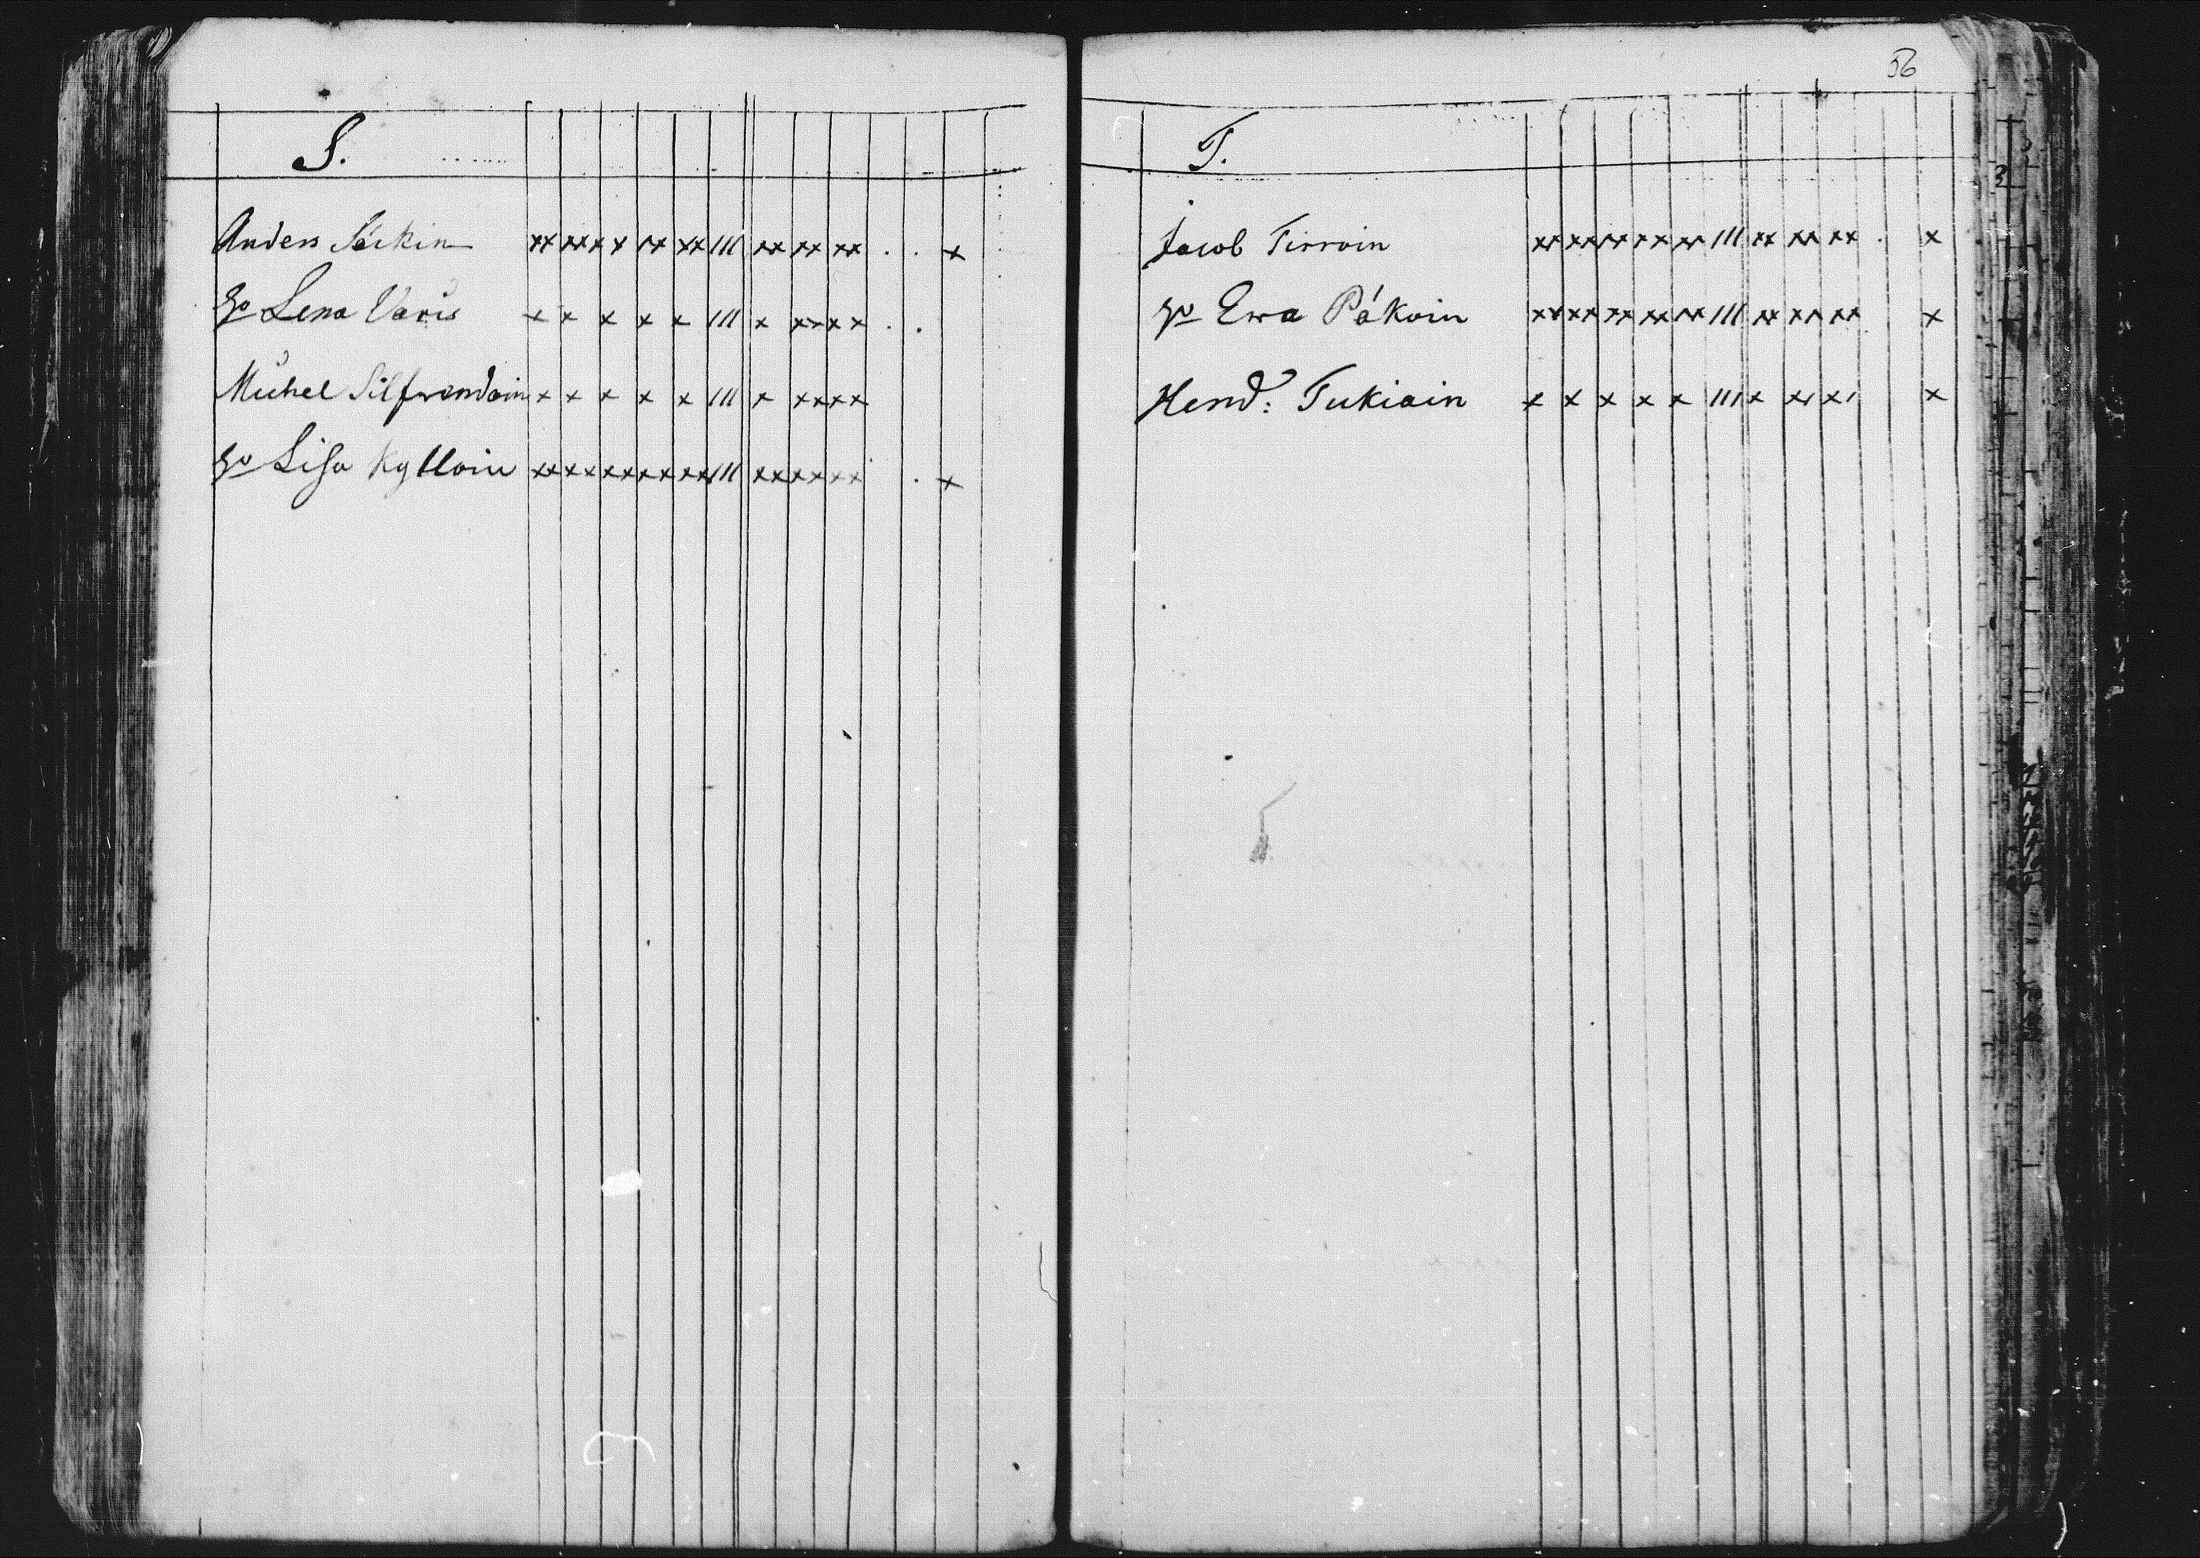 S.
Anders Säckin xx xx x x xx xx III xx xx xx . . x
Hu Lena Varis x x x x x III x xx xx . .
Michel Silfvendoin x x x x x III x xx xx
Hu Lisa Kylloin xx xx xx xx xx III xx xx xx . x
56
T.
Jacob Tirroin xx xx xx xx xx III xx xx xx . x
Hu Ewa Påkoin xx xx xx xx xx III xx xx xx x
Hend: Tukiain x x x x x III x xı xı x